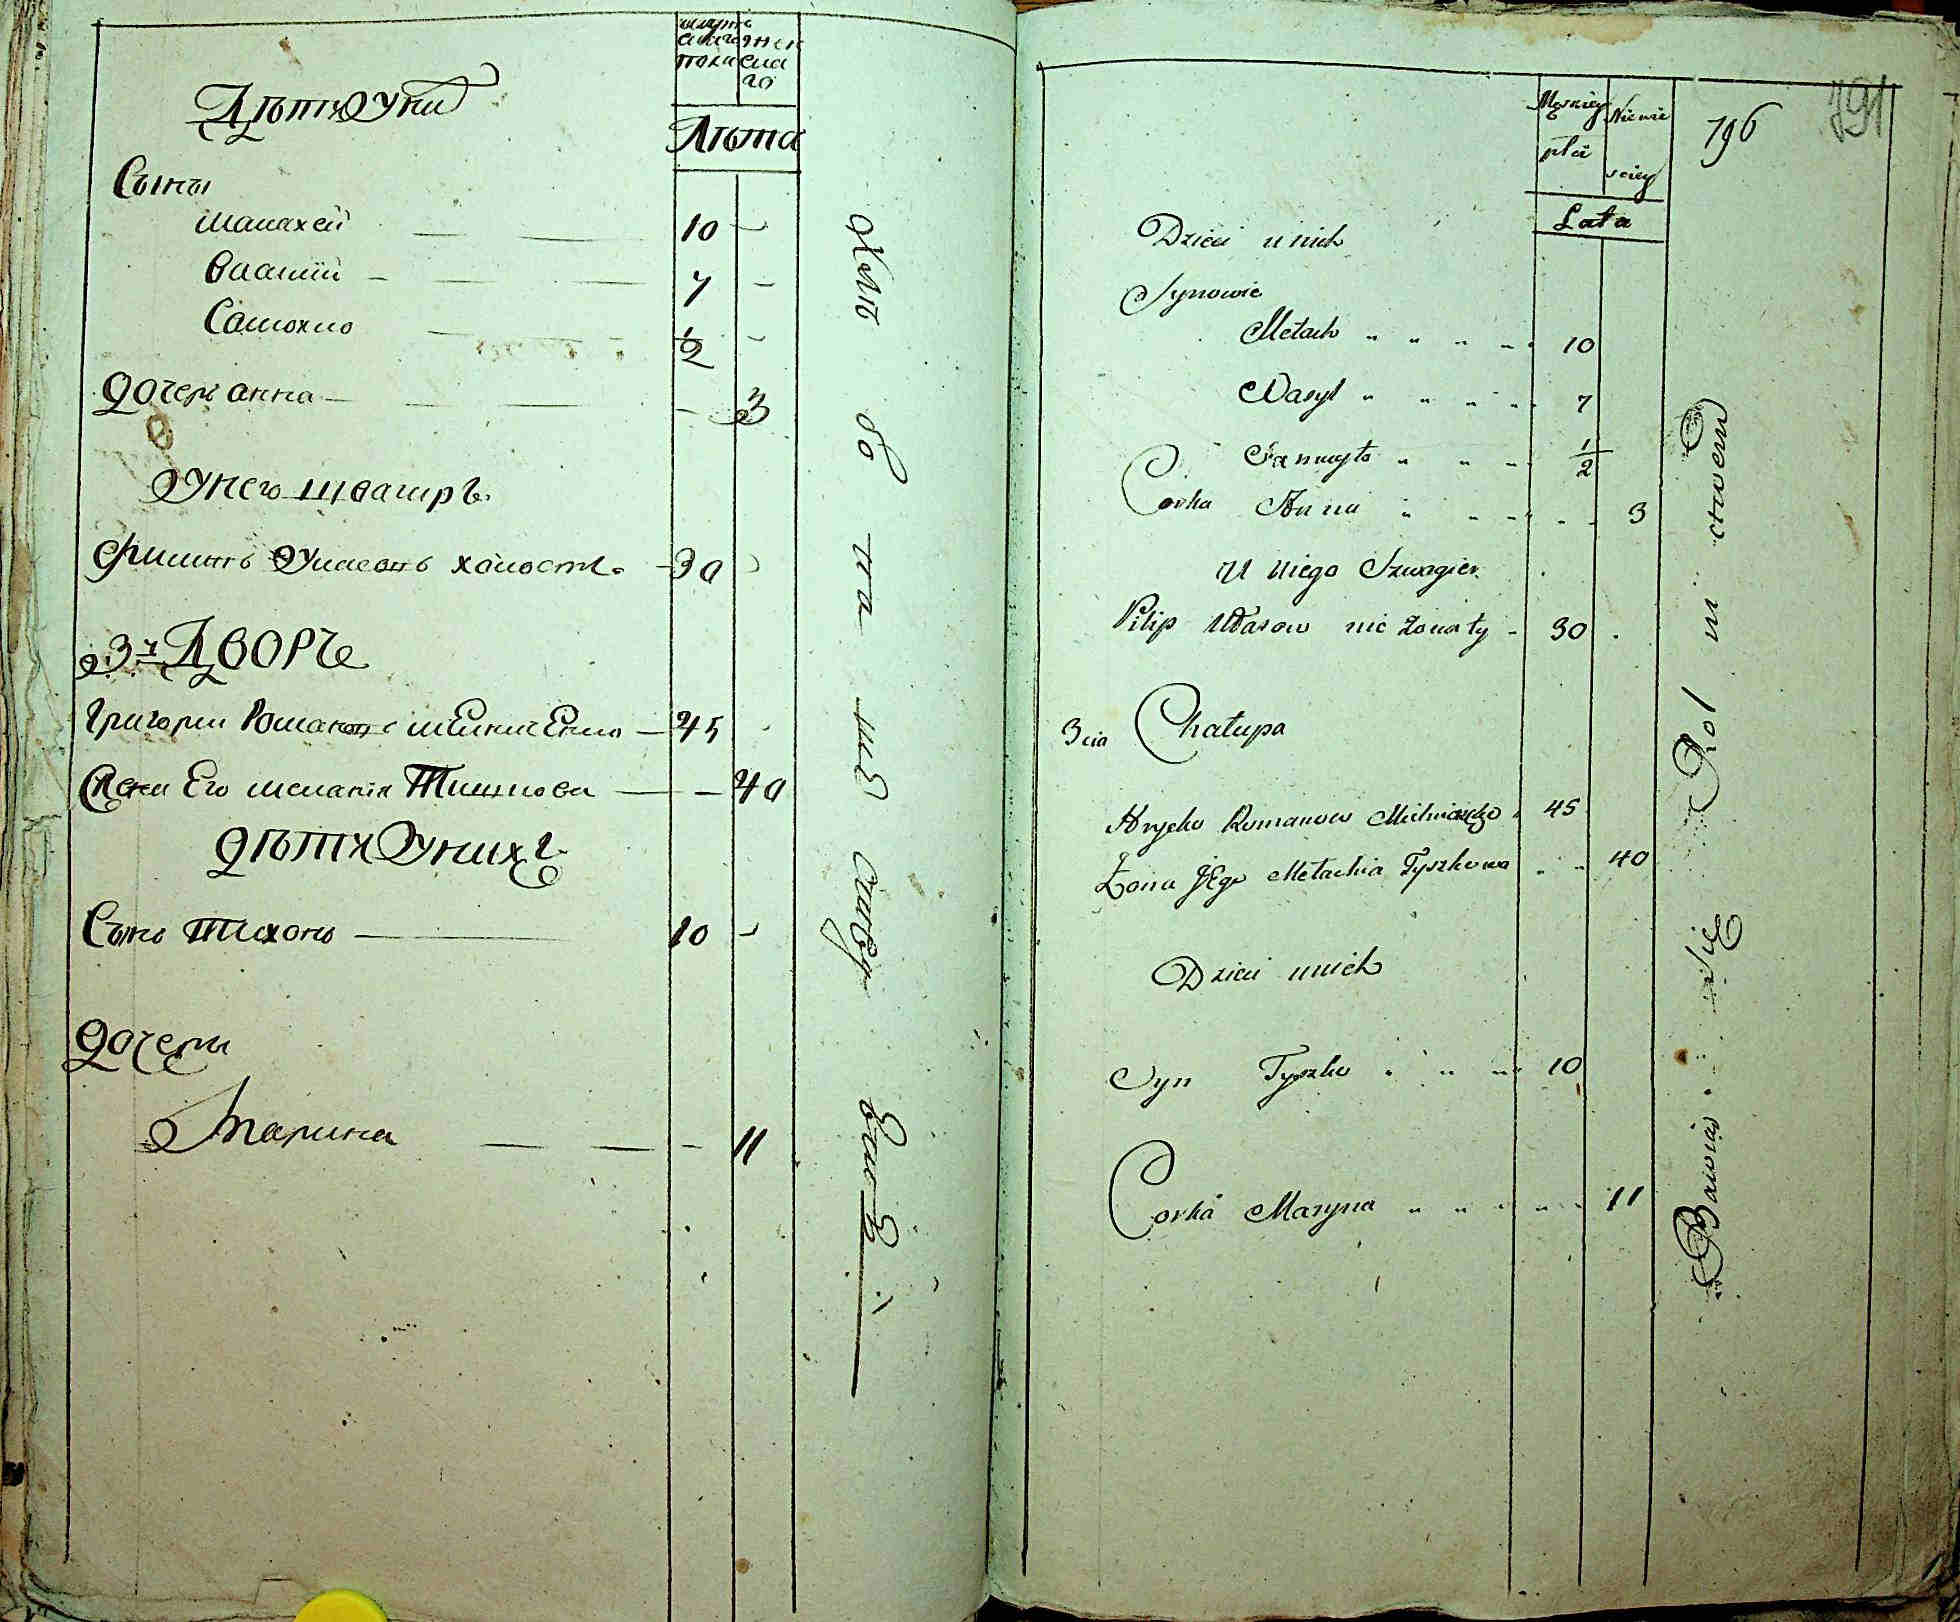 Дѣти у ни
Лѣта
Сыны
Малахей 10
Василий 7
Самойло 1/2
дочерь анна 3
у него швагиръ
Филипъ Уласовъ холостъ 30
3й ДВОРЪ
Григорий Романовъ Мелниченко 45
Жена Его мелания Тишкова 40
дѣти у нихъ
Сынъ тихонъ 10
дочеры
Марина 11
Męskiey płci
Niewiesciey
Lata
796
791
Dzieci u nich
Synowie
Metach 10
Wasyl 7
Samuyło 1/2
Corka Anna 3
U niego Szwagier
Pilip Własow nie żonaty 30
3cia Chałupa
Hrycko Romanow Mielniczenko 45
Żona JEgo Mełachia Tyszkowa 40
Dzieci u nich
Syn Tyszko 10
Corka Maryna 11
Bawią się Rol ni ctwem